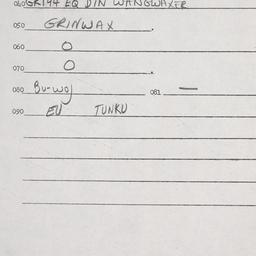 040 GR194 EQ DIN WANGWAXER
050 GRINWAX .
060 O
070 O .
080 Bu-woj 081 —
090 EU TUNKU